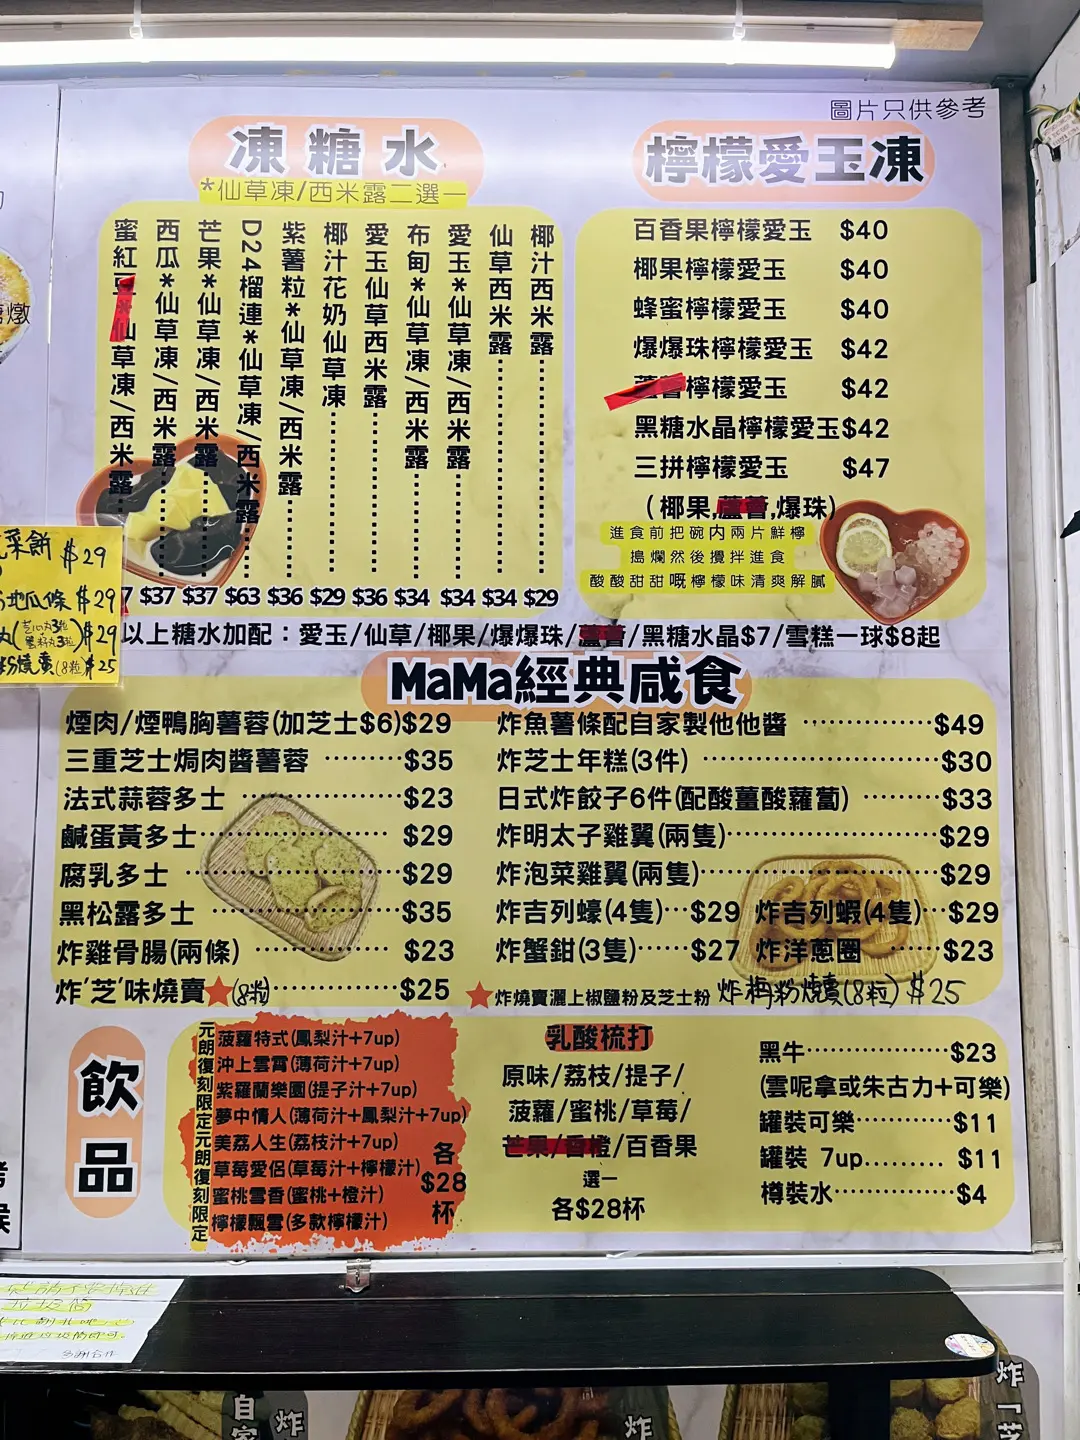 圖片只供參考
凍糖水
*仙草凍/西米露二選一
椰汁西米露 $29
仙草西米露 $34
愛玉*仙草凍/西米露 $34
布甸*仙草凍/西米露 $34
愛玉仙草西米露 $36
椰汁花奶仙草凍 $29
紫薯粒*仙草凍/西米露 $36
D24榴連*仙草凍/西米露 $63
芒果*仙草凍/西米露 $37
西瓜*仙草凍/西米露 $37
蜜紅豆*仙草凍/西米露 7
檸檬愛玉凍
百香果檸檬愛玉 $40
椰果檸檬愛玉 $40
蜂蜜檸檬愛玉 $40
爆爆珠檸檬愛玉 $42
蘆薈檸檬愛玉 $42
黑糖水晶檸檬愛玉$42
三拼檸檬愛玉 $47
(椰果,蘆薈,爆珠)
進食前把碗内兩片鮮檸
搗爛然後攪拌進食
酸酸甜甜嘅檸檬味清爽解膩
以上糖水加配：愛玉/仙草/椰果/爆爆珠/蘆薈/黑糖水晶$7/雪糕一球$8起
菜餅 $29
地瓜條 $29
$29
燒賣(8粒)$25
燉
MaMa經典咸食
煙肉/煙鴨胸薯蓉(加芝士$6)$29
三重芝士焗肉醬薯蓉 ········$35
法式蒜蓉多士 ········$23
鹹蛋黃多士········ $29
腐乳多士 ········$29
黑松露多士 ········$35
炸雞骨腸(兩條) ········ $23
炸'芝'味燒賣★(8粒)········$25
炸魚薯條配自家製他他醬 ········$49
炸芝士年糕(3件) ········$30
日式炸餃子6件(配酸薑酸蘿蔔) ········$33
炸明太子雞翼(兩隻)········$29
炸泡菜雞翼(兩隻)········$29
炸吉列蠔(4隻)···$29 炸吉列蝦(4隻)···$29
炸蟹鉗(3隻)······$27 炸洋蔥圈 ······$23
★炸燒賣灑上椒鹽粉及芝士粉 炸梅粉燒賣(8粒) $25
飲品
元朗復刻限定元朗復刻限定
菠蘿特式(鳳梨汁+7up)
沖上雲霄(薄荷汁+7up)
紫羅蘭樂園(提子汁+7up)
夢中情人(薄荷汁+鳳梨汁+7up)
美荔人生(荔枝汁+7up)
草莓愛侶(草莓汁+檸檬汁)
蜜桃雪香(蜜桃+橙汁)
檸檬飄雪(多款檸檬汁)
各
$28
杯
乳酸梳打
原味/荔枝/提子/
菠蘿/蜜桃/草莓/
芒果/香橙/百香果
選一
各$28杯
黑牛········$23
(雲呢拿或朱古力+可樂)
罐裝可樂········$11
罐裝 7up......... $11
樽裝水········$4
垃圾筒
多謝合作
自家
炸
炸
炸「芝